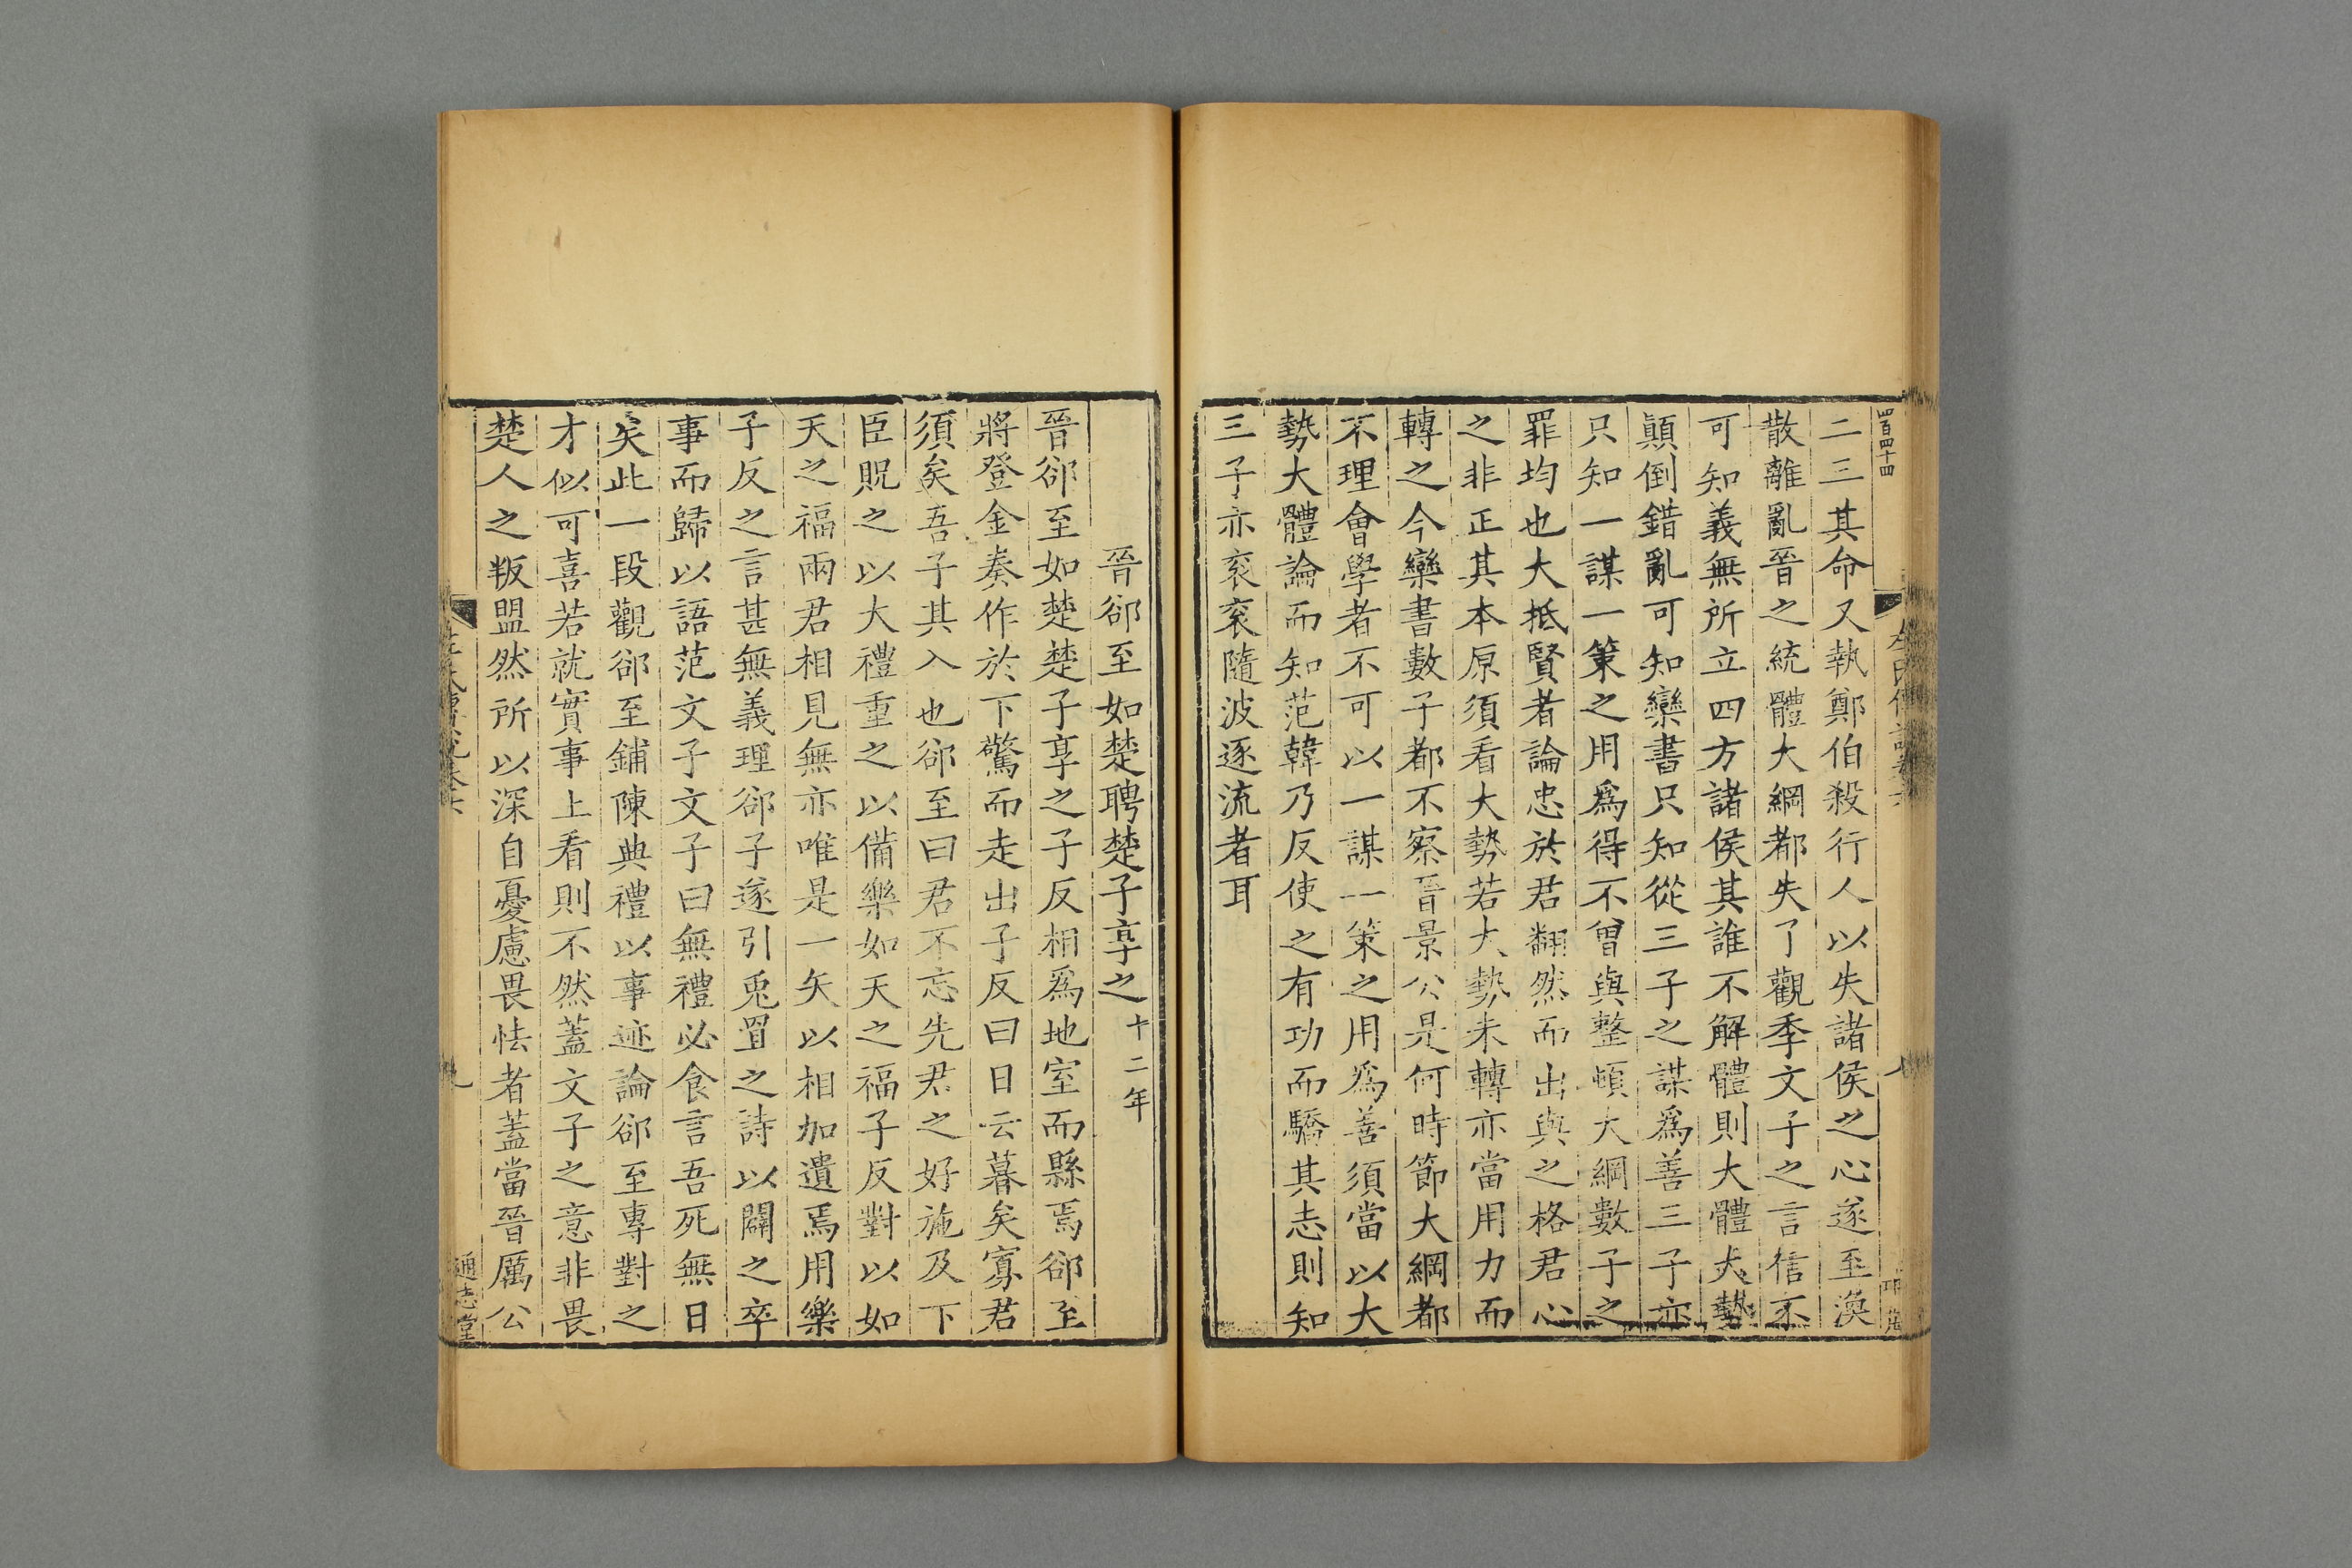 四百四十四
二三其命又執鄭伯殺行人以失諸侯之心遂至渙
散離亂晉之統體大綱都失了觀季文子之言信不
可知義無所立四方諸侯其誰不解體則大體大勢
顛倒錯亂可知欒書只知從三子之謀爲善三子亦
只知一謀一策之用爲得不曾與整頓大綱數子之
罪均也大抵賢者論忠於君翻然而出與之格君心
之非正其本原須看大勢若大勢未轉亦當用力而
轉之今欒書數子都不察晉景公是何時節大綱都
不理會學者不可以一謀一策之用爲善須當以大
勢大體論而知范韓乃反使之有功而驕其志則知
三子亦衮衮隨波逐流者耳
晉郤至如楚聘楚子享之十二年
晉郤至如楚楚子享之子反相爲地室而縣焉郤至
將登金奏作於下驚而走出子反曰日云暮矣寡君
須矣吾子其入也郤至曰君不忘先君之好施及下
臣貺之以大禮重之以備樂如天之福子反對以如
天之福兩君相見無亦唯是一矢以相加遺焉用樂
子反之言甚無義理郤子遂引兎罝之詩以闢之卒
事而歸以語范文子文子曰無禮必食言吾死無日
矣此一段觀郤至鋪陳典禮以事迹論郤至專對之
才似可喜若就實事上看則不然蓋文子之意非畏
楚人之叛盟然所以深自憂慮畏怯者蓋當晉厲公
通志堂